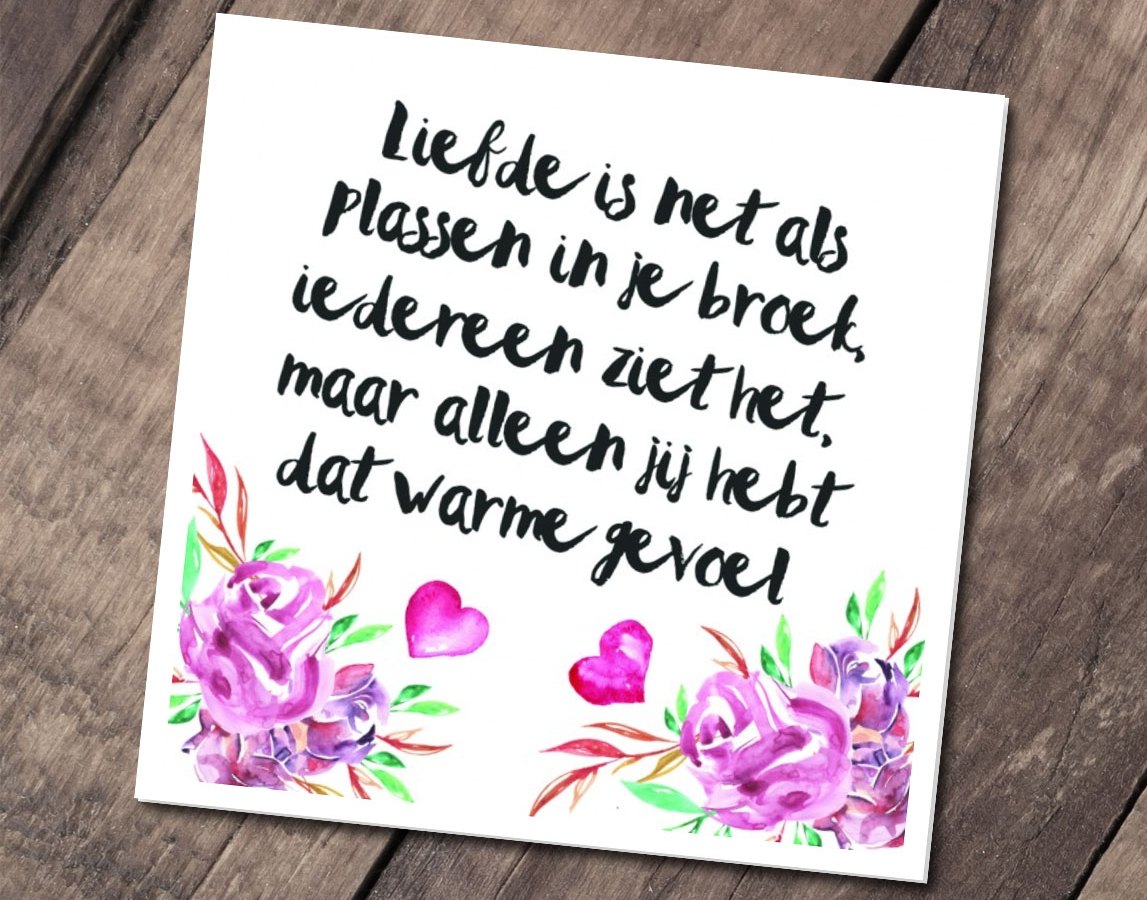 Liefde is net als
plassen in je broek,
iedereen ziet het,
maar alleen jij hebt
dat warme gevoel